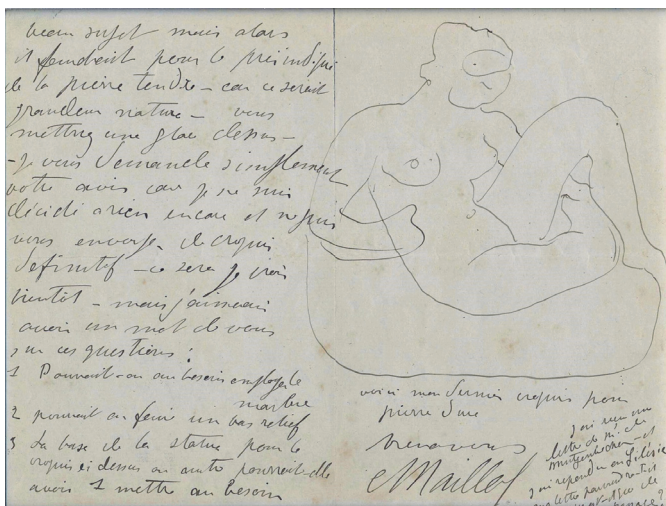 beau sujet mais alors
il faudrait pour le prix indiqué
de la pierre tendre – car ce serait
grandeur nature – vous
mettrez une glace dessus –
– je vous demande simplement
votre avis car je ne suis
décidé a rien encore et ne puis
vous envoyer de croquis
definitif – ce sera je crois
bientôt – mais j'aimerais
avoir un mot de vous
sur ces questions :
1 Pourrait-on au besoin employer le
marbre
2 pourrait on faire un bas relief
3 La base de la statue pour le
croquis ci dessus ou autre pourrait-elle
avoir 1 metre au besoin
voici mon dernier croquis pour
pierre dure
bien a vous
Maillol
j'ai reçu une
lettre de
et
j'ai repondu en Silésie
lettre